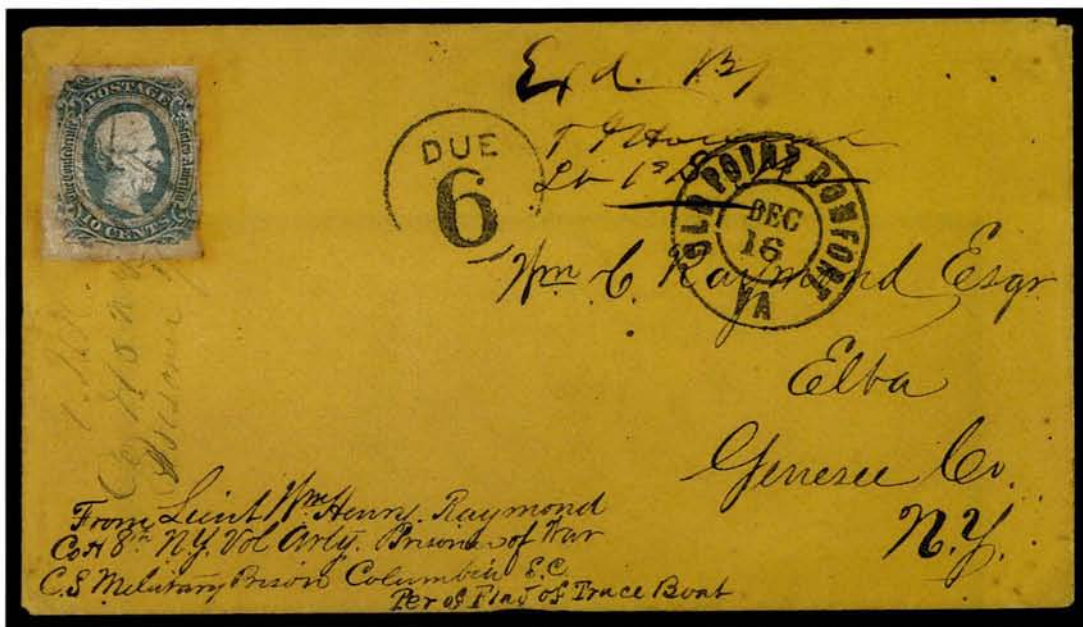 POSTAGE
The Confederate States America
10 CENTS
Exd. By
DUE
6
OLD POINT COMFORT
DEC
16
VA
Wm. C. Raymond Esqr
Elba
Genesee Co.
N.Y.
Prisoner
From Lieut Wm Henry. Raymond
Co H 8th N.Y. Vol Arty. Prisoner of War
C.S Military Prison Columbia S.C.
Per of Flag of Truce Boat